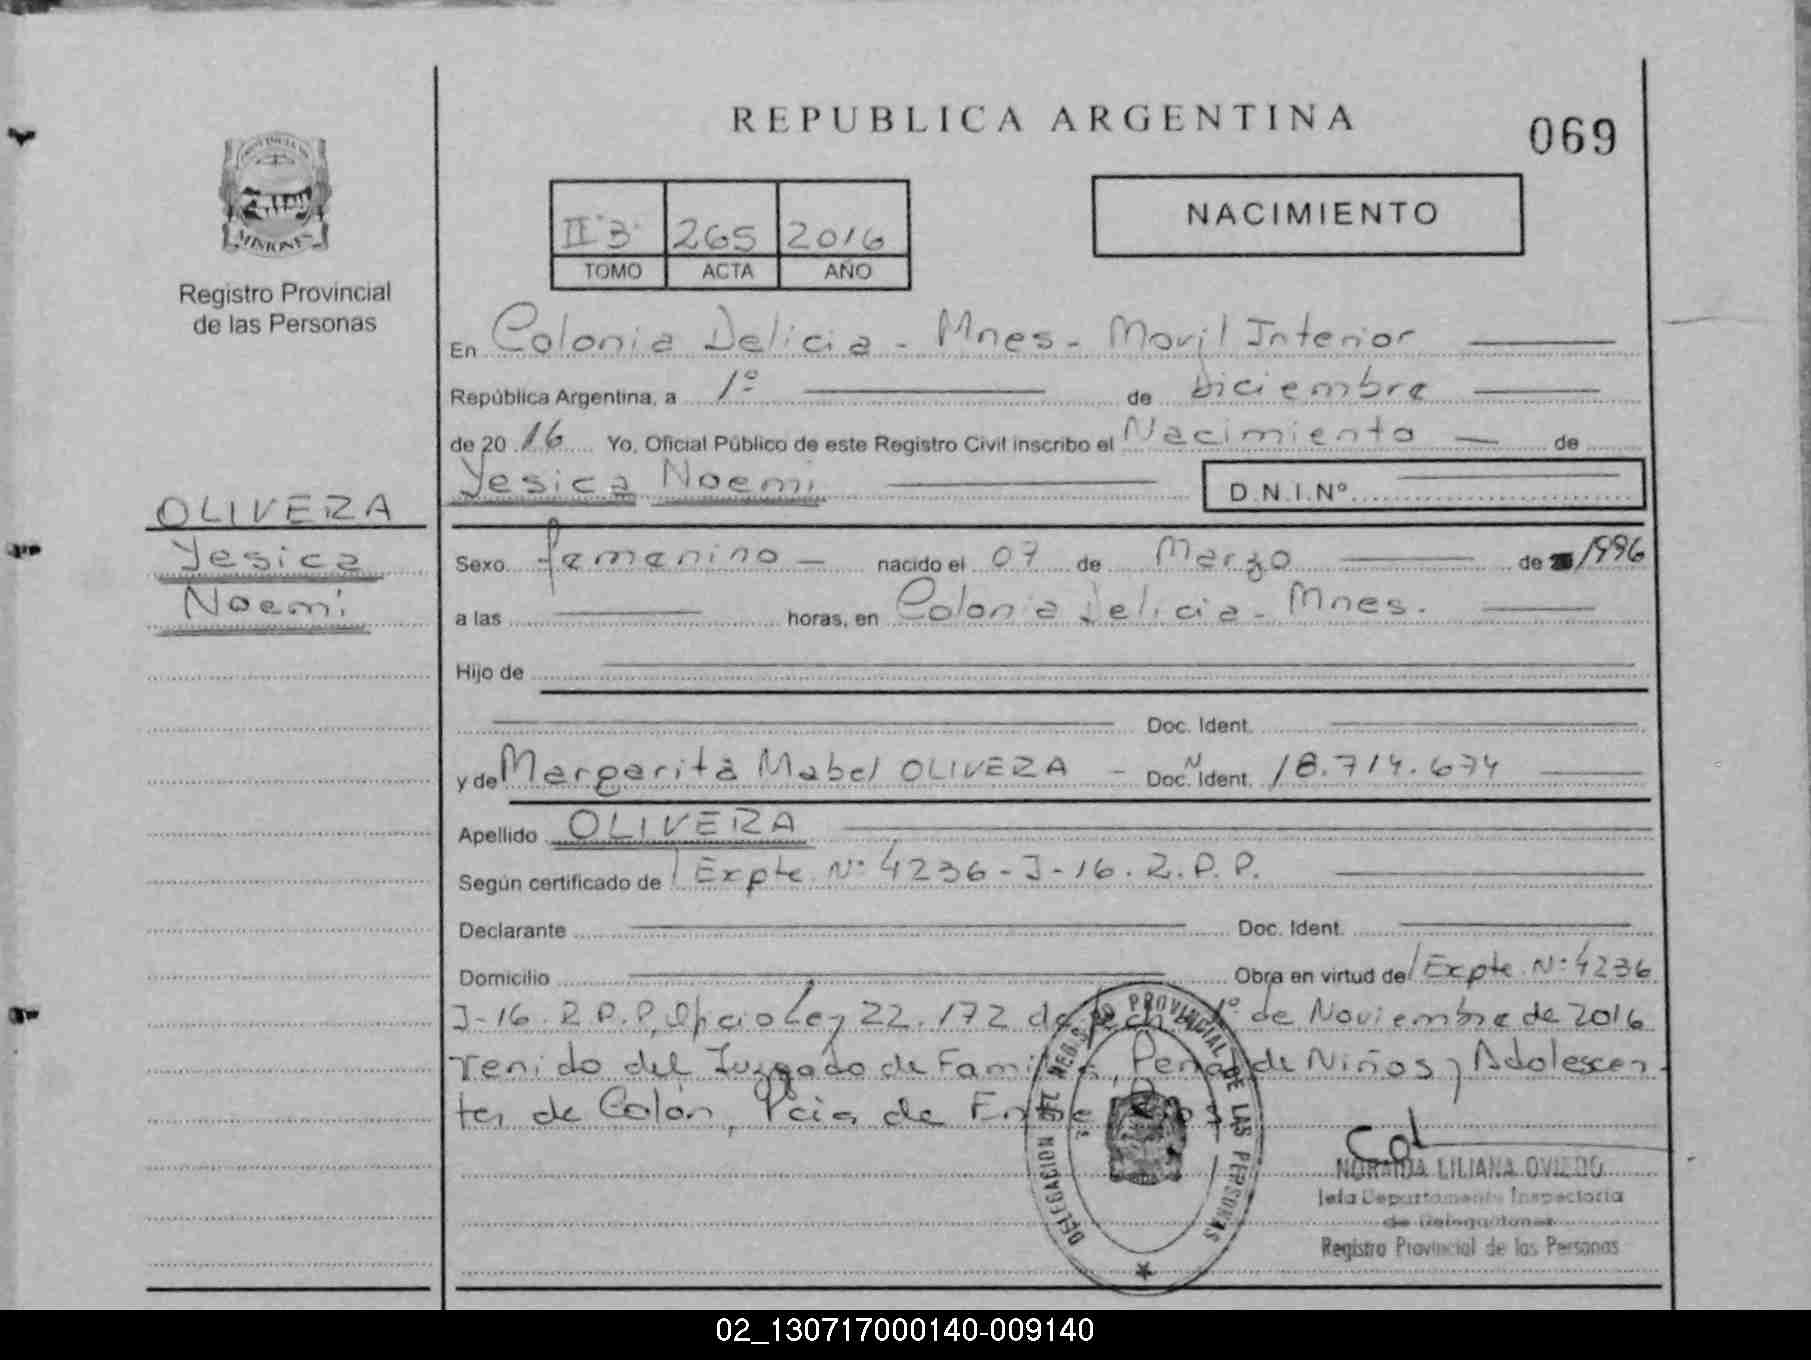 REPUBLICA ARGENTINA
069
PROVINCIA DE
MISIONES
Registro Provincial
de las Personas
II "3" 265 2016
TOMO ACTA AÑO
NACIMIENTO
En Colonia Delicia - Mnes - Movil Interior
República Argentina, a 1º de Diciembre
de 2016 Yo, Oficial Público de este Registro Civil inscribo el Nacimiento de
Yesica Noemi D.N.I.Nº
OLIVERA
Yesica
Noemi
Sexo femenino nacido el 07 de Marzo de 1996
a las horas, en Colonia Delicia - Mnes.
Hijo de
Doc. Ident.
y de Margarita Mabel OLIVERA - Doc. N Ident. 18.714.674
Apellido OLIVERA
Según certificado de Expte. Nº 4236-J-16. R.P.P.
Declarante Doc. Ident.
Domicilio Obra en virtud de Expte. Nº 4236
J-16. R.P.P, Oficio Ley 22.172 de fecha 1º de Noviembre de 2016
venido del Juzgado de Familia, Penal de Niños y Adolescen-
tes de Colón, Pcia de Entre Rios
DELEGACION DEL REG. PROVINCIAL DE LAS PERSONAS
NORAIDA LILIANA OVIEDO
Jefa Departamento Inspectoria
de Delegaciones
Registro Provincial de las Personas
02_130717000140-009140